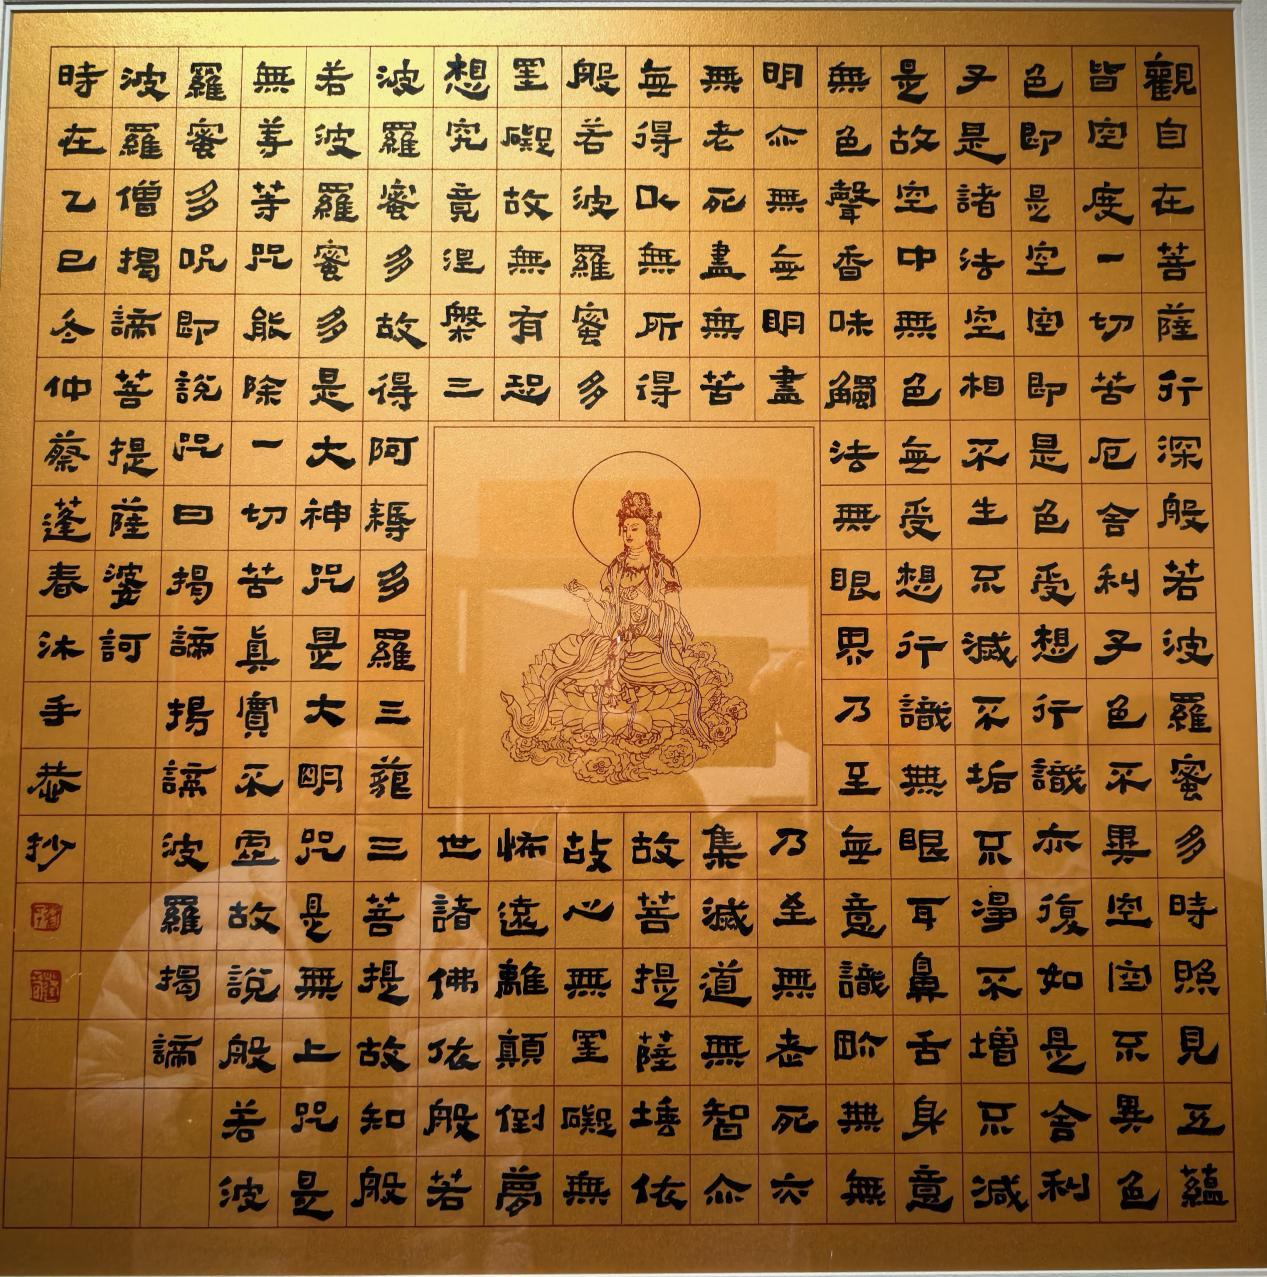 觀自在菩薩行深般若波羅蜜多時照見五蘊
皆空度一切苦厄舍利子色不異空空不異色
色即是空空即是色受想行識亦復如是舍利
子是諸法空相不生不滅不垢不淨不增不減
是故空中無色無受想行識無眼耳鼻舌身意
無色聲香味觸法無眼界乃至無意識畍無無
明亦無無明盡乃至無老死亦
無老死盡無苦集滅道無智亦
無得以無所得故菩提薩埵依
般若波羅蜜多故心無罣礙無
罣礙故無有恐怖遠離顛倒夢
想究竟涅槃三世諸佛依般若
波羅蜜多故得阿耨多羅三藐三菩提故知般
若波羅蜜多是大神咒是大明咒是無上咒是
無等等咒能除一切苦眞實不虛故說般若波
羅蜜多呪即說咒曰揭諦揭諦波羅揭諦
波羅僧揭諦菩提薩婆訶
時在乙巳冬仲蔡蓬春沐手恭抄